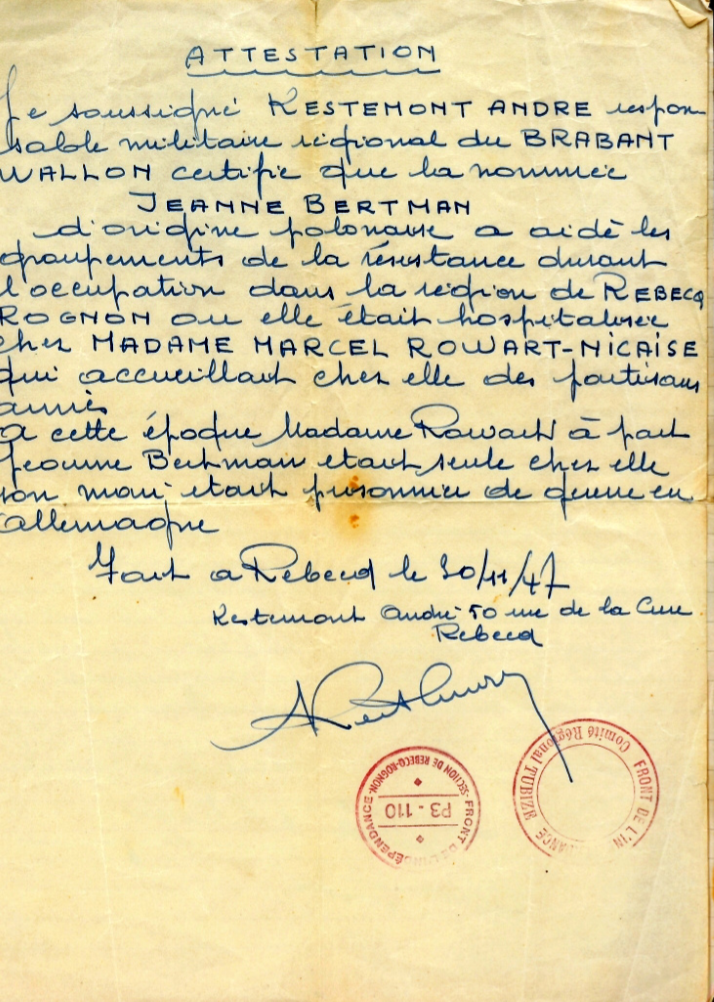 ATTESTATION
Je soussigné KESTEMONT ANDRE respon
sable militaire régional du BRABANT
WALLON certifie que la nommée
JEANNE BERTMAN
d'origine polonaise a aidé les
groupements de la résistance durant
l'occupation dans la région de REBECQ
ROGNON ou elle était hospitalisée
chez MADAME MARCEL ROWART-NICAISE
qui accueillait chez elle des partisans
armés
A cette époque Madame Rowart à part
Jeanne Bertman etait seule chez elle
son mari etait prisonnier de guerre en
Allemagne
Fait a Rebecq le 30/11/47
Kestemont André 50 rue de la Cure
Rebecq
FRONT DE L'INDÉPENDANCE
SECTION DE REBECQ-ROGNON
P3-110
FRONT DE L'IN ANCE
Comité Régional TUBIZE